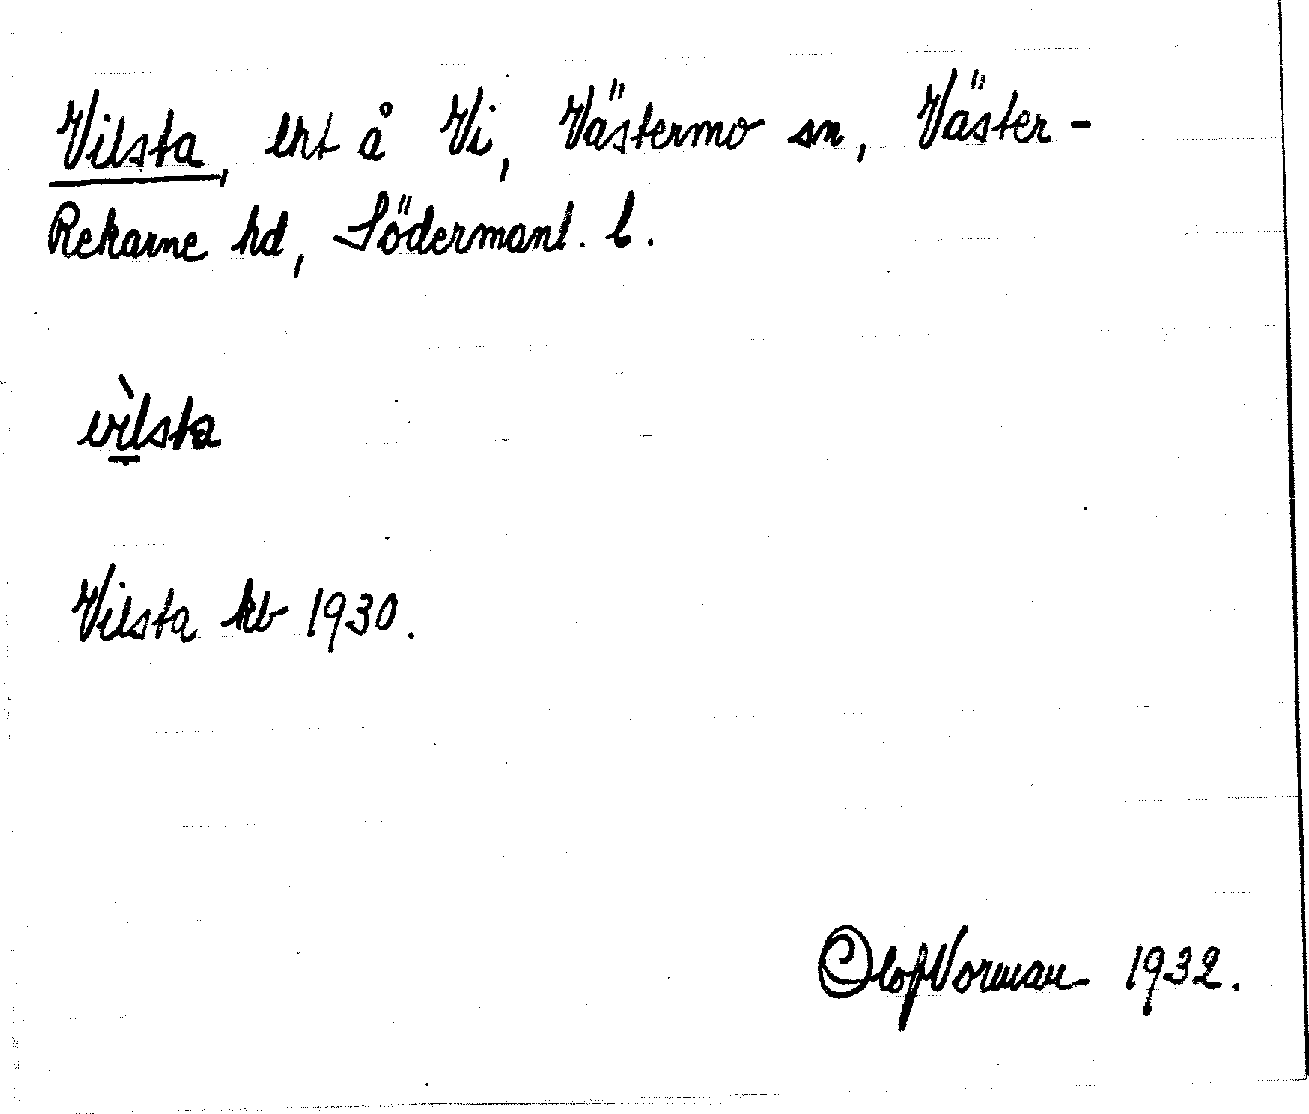 Vilsta, lht å Vi, Västermo sn, Väster-
Rekarne hd, Södermanl. l.
vìlsta
Vilsta kb 1930.
Olof Norman 1932.